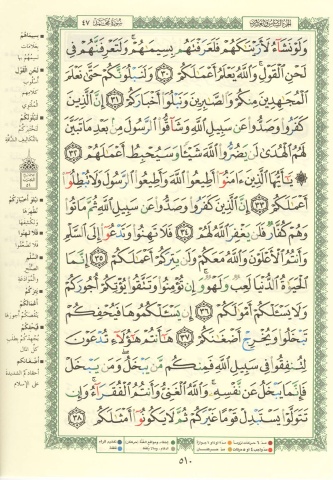 الجزء السادس والعشرون
سورة محمد ٤٧
وَلَوْ نَشَآءُ لَأَرَيْنَٰكَهُمْ فَلَعَرَفْتَهُم بِسِيمَٰهُمْ ۚ وَلَتَعْرِفَنَّهُمْ فِى
لَحْنِ ٱلْقَوْلِ ۚ وَٱللَّهُ يَعْلَمُ أَعْمَٰلَكُمْ ٣٠ وَلَنَبْلُوَنَّكُمْ حَتَّىٰ نَعْلَمَ
ٱلْمُجَٰهِدِينَ مِنكُمْ وَٱلصَّٰبِرِينَ وَنَبْلُوَا۟ أَخْبَارَكُمْ ٣١ إِنَّ ٱلَّذِينَ
كَفَرُوا۟ وَصَدُّوا۟ عَن سَبِيلِ ٱللَّهِ وَشَآقُّوا۟ ٱلرَّسُولَ مِنۢ بَعْدِ مَا تَبَيَّنَ
لَهُمُ ٱلْهُدَىٰ لَن يَضُرُّوا۟ ٱللَّهَ شَيْـًٔا وَسَيُحْبِطُ أَعْمَٰلَهُمْ ٣٢
يَٰٓأَيُّهَا ٱلَّذِينَ ءَامَنُوٓا۟ أَطِيعُوا۟ ٱللَّهَ وَأَطِيعُوا۟ ٱلرَّسُولَ وَلَا تُبْطِلُوٓا۟
أَعْمَٰلَكُمْ ٣٣ إِنَّ ٱلَّذِينَ كَفَرُوا۟ وَصَدُّوا۟ عَن سَبِيلِ ٱللَّهِ ثُمَّ مَاتُوا۟
وَهُمْ كُفَّارٌ فَلَن يَغْفِرَ ٱللَّهُ لَهُمْ ٣٤ فَلَا تَهِنُوا۟ وَتَدْعُوٓا۟ إِلَى ٱلسَّلْمِ
وَأَنتُمُ ٱلْأَعْلَوْنَ وَٱللَّهُ مَعَكُمْ وَلَن يَتِرَكُمْ أَعْمَٰلَكُمْ ٣٥ إِنَّمَا
ٱلْحَيَوٰةُ ٱلدُّنْيَا لَعِبٌ وَلَهْوٌ ۚ وَإِن تُؤْمِنُوا۟ وَتَتَّقُوا۟ يُؤْتِكُمْ أُجُورَكُمْ
وَلَا يَسْـَٔلْكُمْ أَمْوَٰلَكُمْ ٣٦ إِن يَسْـَٔلْكُمُوهَا فَيُحْفِكُمْ
تَبْخَلُوا۟ وَيُخْرِجْ أَضْغَٰنَكُمْ ٣٧ هَٰٓأَنتُمْ هَٰٓؤُلَآءِ تُدْعَوْنَ
لِتُنفِقُوا۟ فِى سَبِيلِ ٱللَّهِ فَمِنكُم مَّن يَبْخَلُ ۖ وَمَن يَبْخَلْ
فَإِنَّمَا يَبْخَلُ عَن نَّفْسِهِۦ ۚ وَٱللَّهُ ٱلْغَنِىُّ وَأَنتُمُ ٱلْفُقَرَآءُ ۚ وَإِن
تَتَوَلَّوْا۟ يَسْتَبْدِلْ قَوْمًا غَيْرَكُمْ ثُمَّ لَا يَكُونُوٓا۟ أَمْثَٰلَكُم ٣٨
بسيماهم
بعلامات
لحن القول
لنبلونكم
نبلو أخباركم
فلا تهنوا
السلم
يتركم
أعمالكم
فيحفكم
أضغانكم
على الإسلام
٥١٠